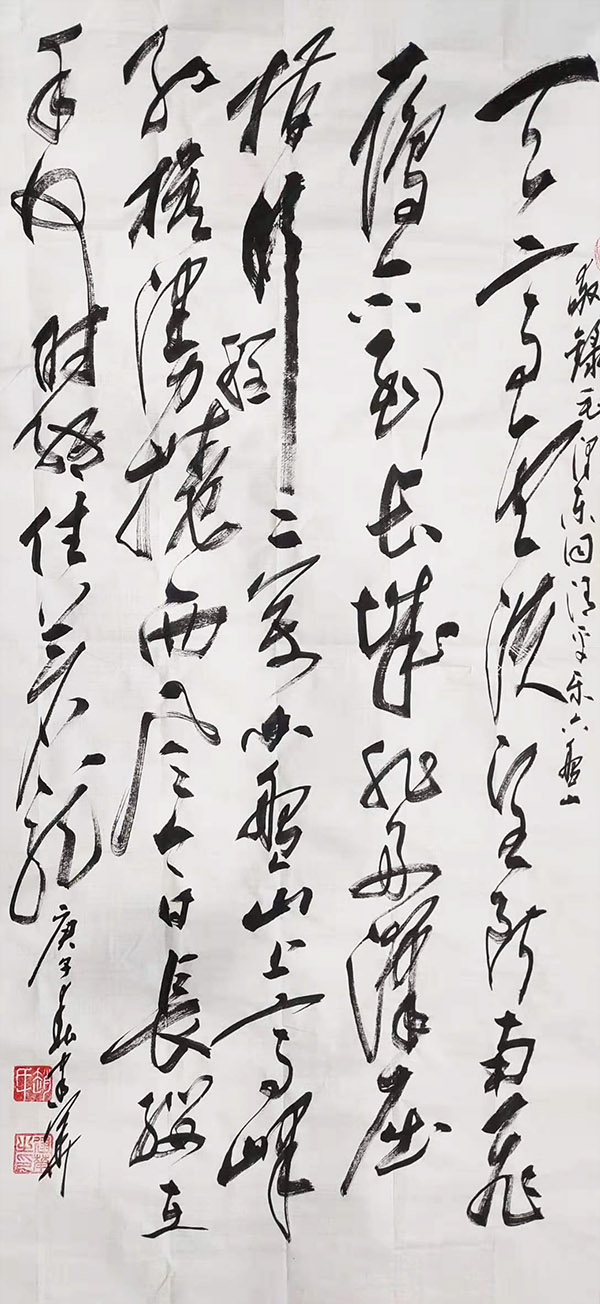 敬录毛泽东词清平乐六盘山
天高云淡望断南飞
雁不到长城非好汉屈
指行程二万六盘山上高峰
红旗漫卷西风今日長缨在
手何时缚住苍龙
庚子春建华